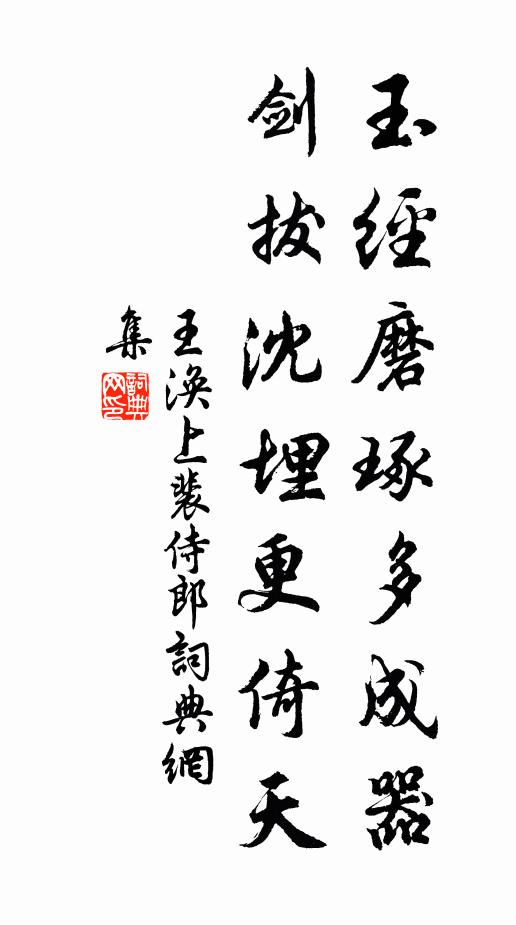 玉經磨琢多成器
劍拔沈埋更倚天
王渙上裴侍郎詞典網
集
詞典
网印